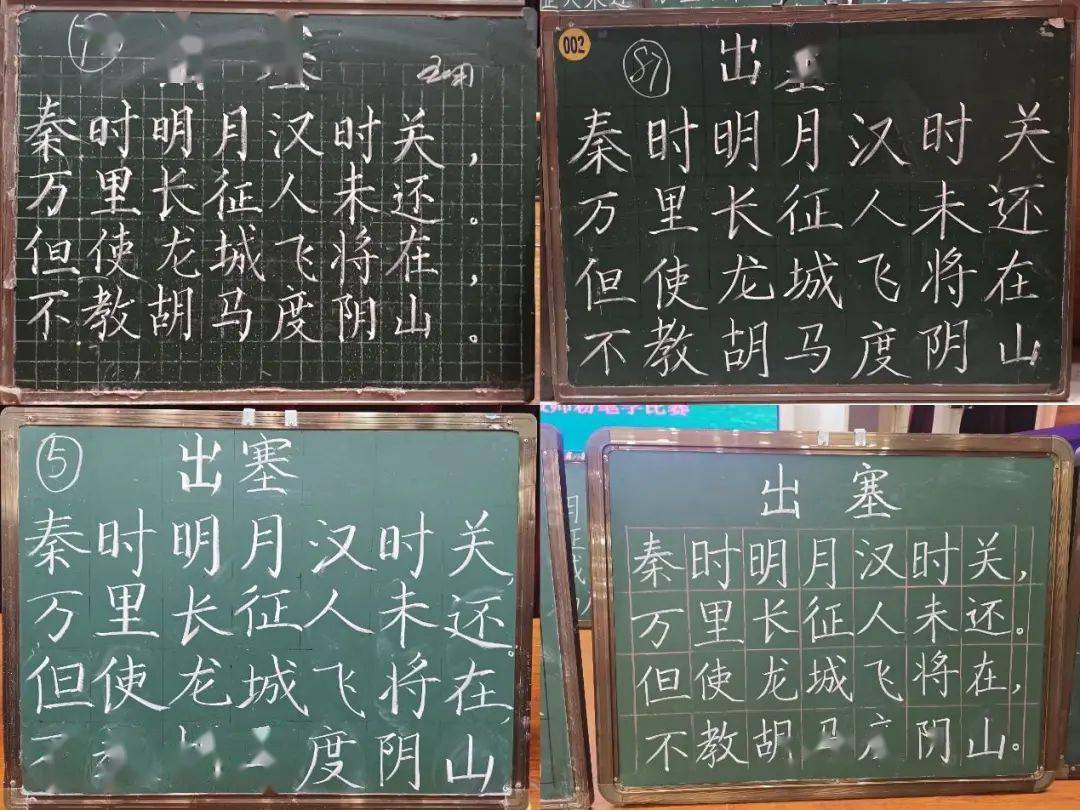 秦时明月汉时关，
万里长征人未还。
但使龙城飞将在，
不教胡马度阴山。
002
出
秦时明月汉时关
万里长征人未还
但使龙城飞将在
不教胡马度阴山
⑤ 出塞
秦时明月汉时关，
万里长征人未还。
但使龙城飞将在，
度阴山
粉笔字比赛
出塞
秦时明月汉时关，
万里长征人未还。
但使龙城飞将在，
不教胡阴山。